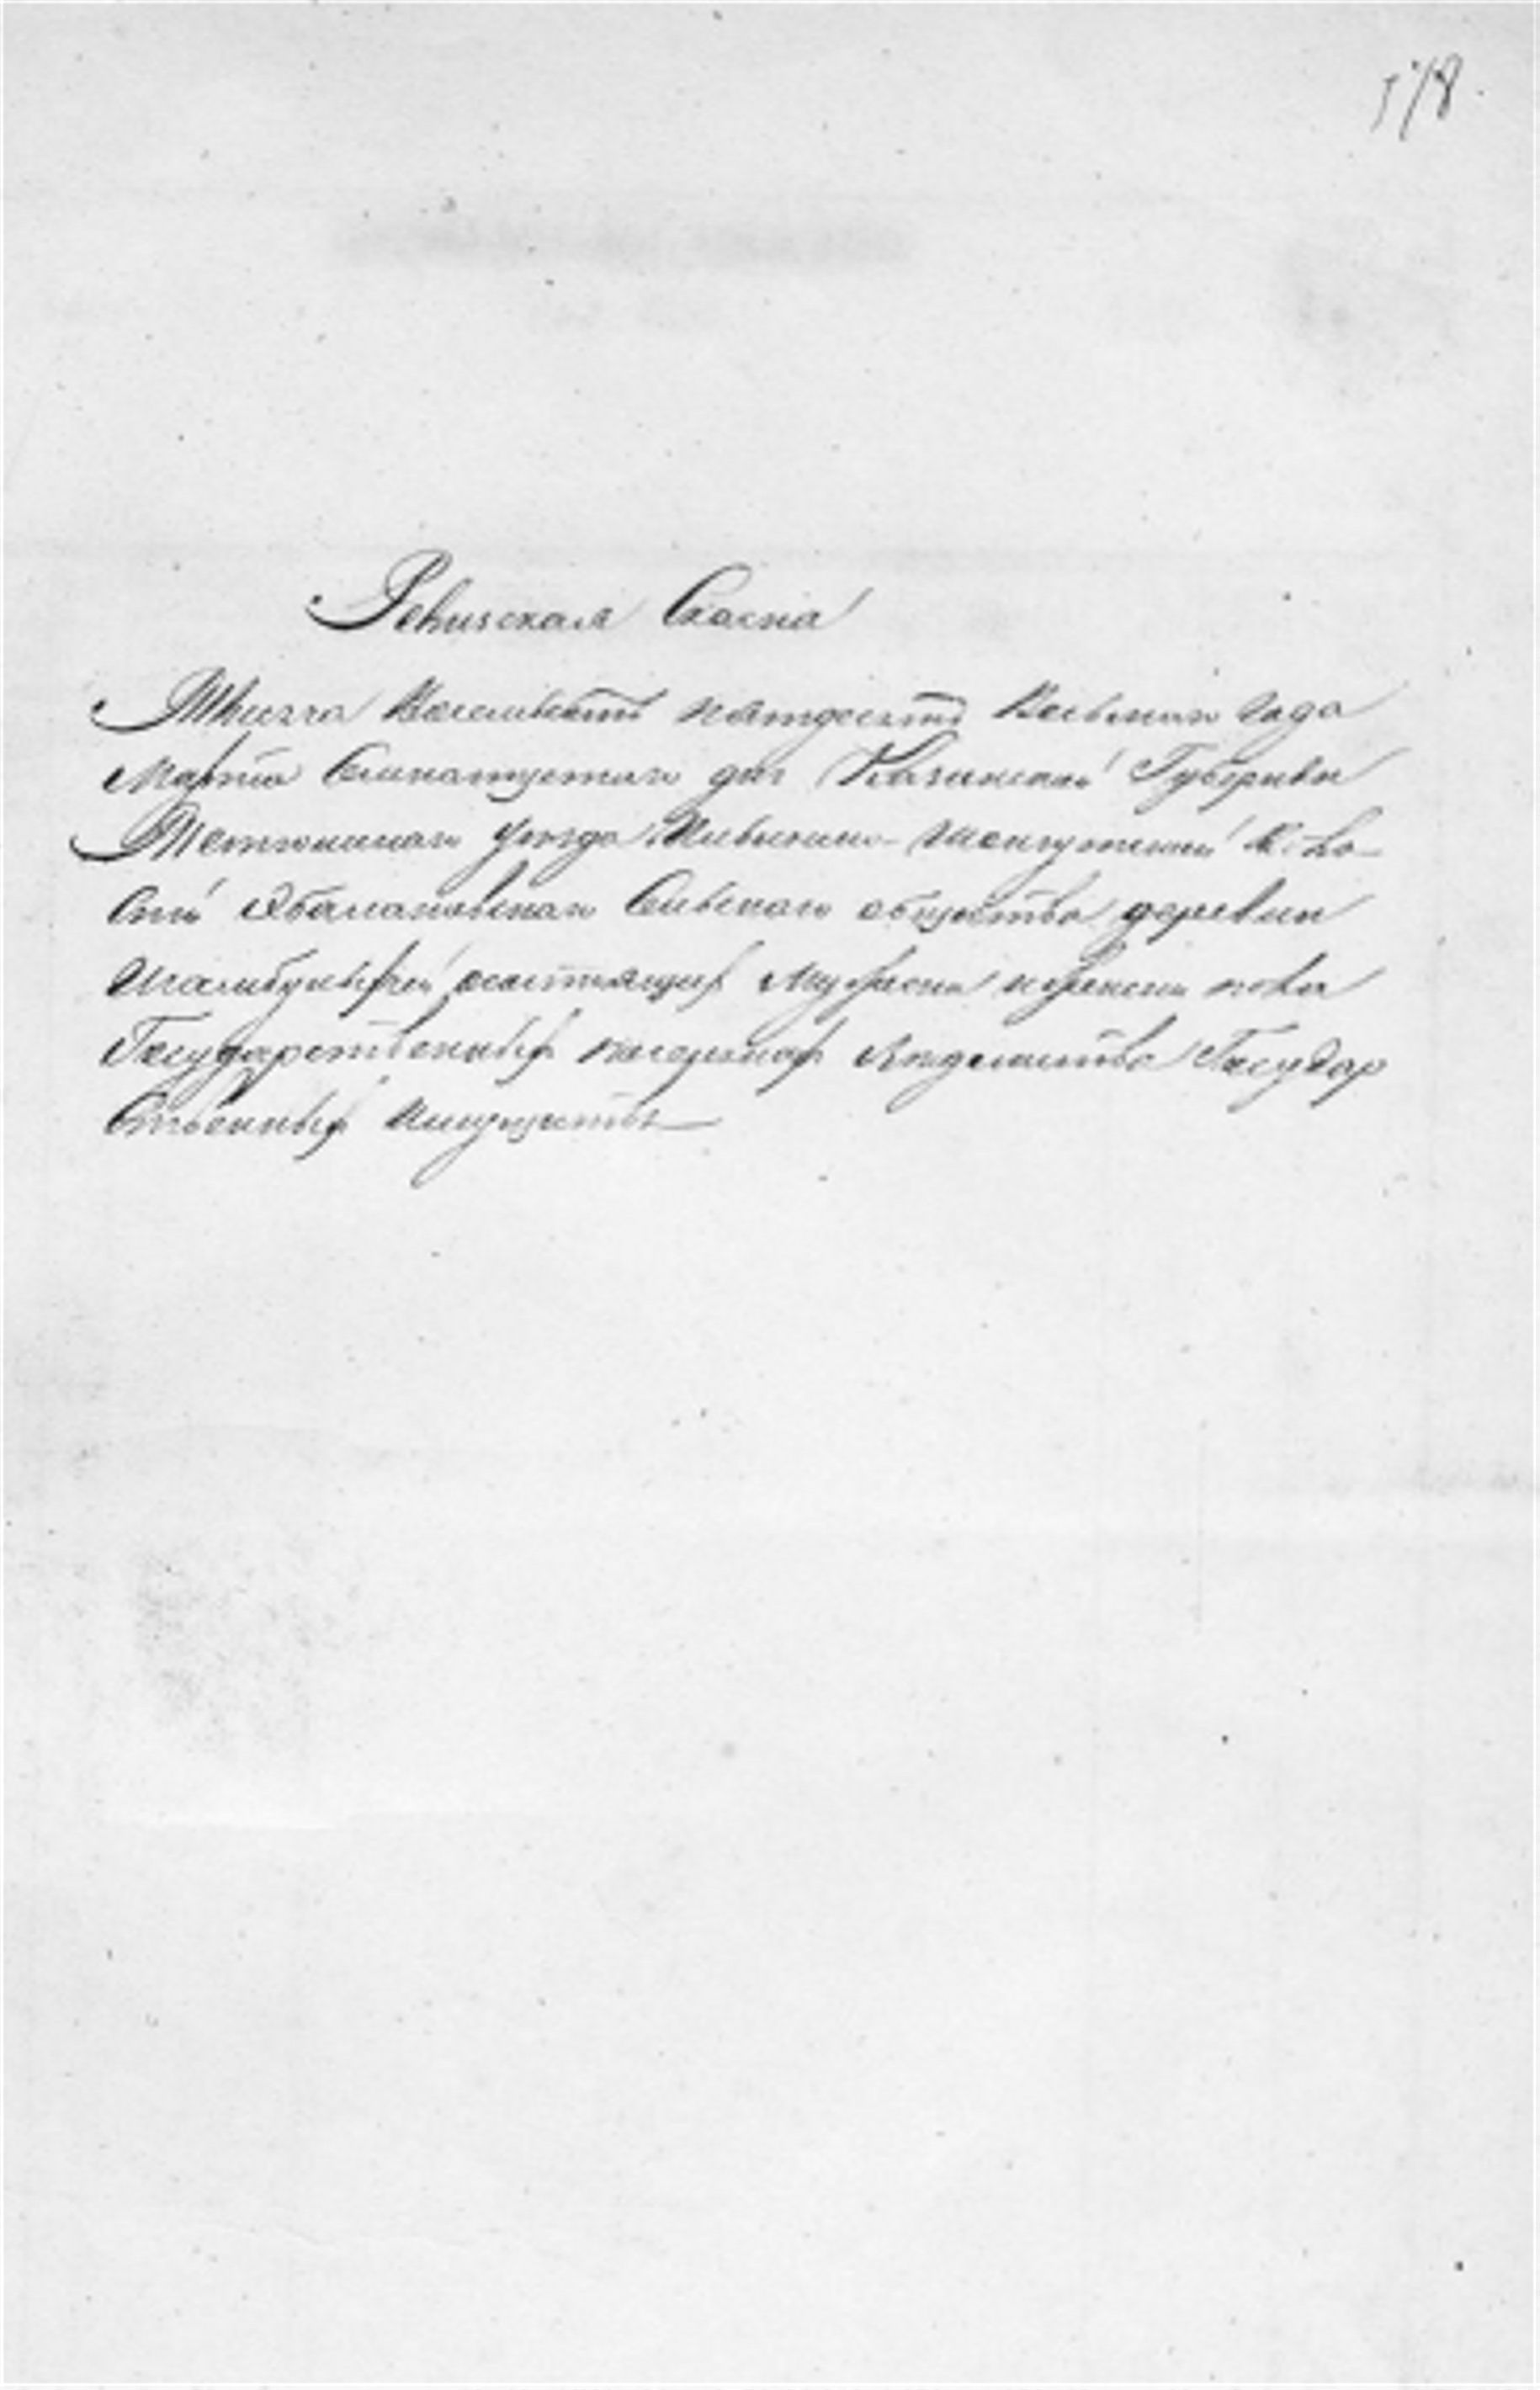 578.
Ревизская Сказка
Тысяча Восемьсотъ пятдесятъ Восьмаго года
Марта Семнатцетаго дня Казанской Губернии
Тетюшскаго уезда Шемуртской Воло-
сти Сельскаго общества деревни
состоящихъ мужеска и женска пола
Государственныхъ поселянахъ ведомства Государ
ственныхъ имуществъ